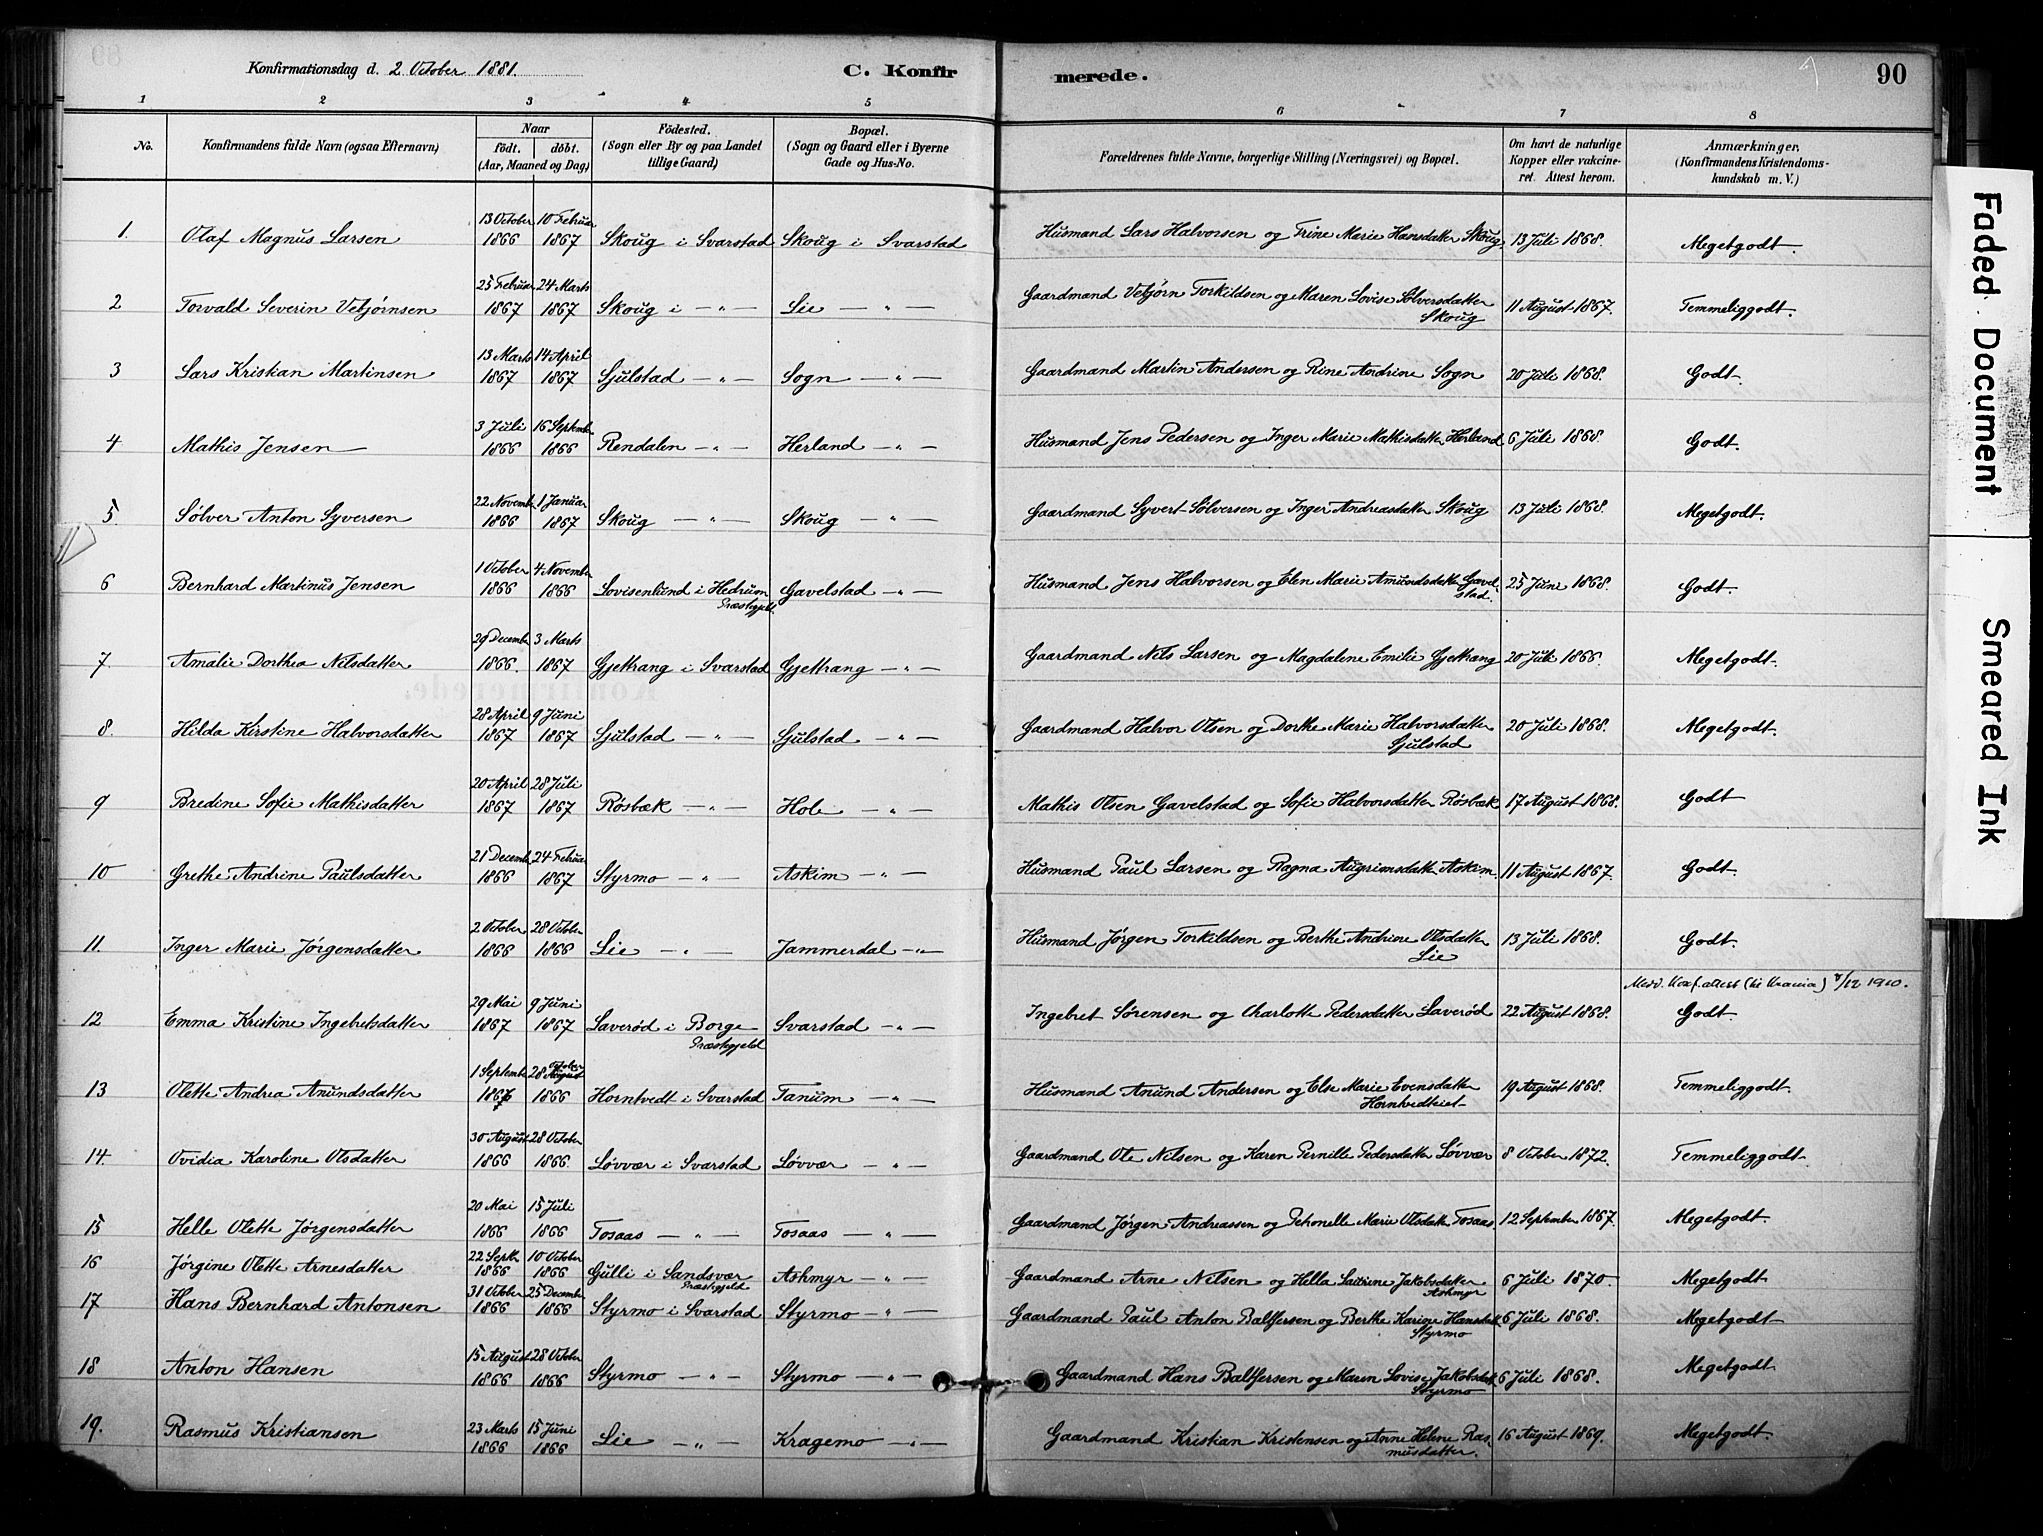 Konfirmationsdag d. 2 October 1881.
C. Konfir
merede.
90
1 2 3 4 5 6 7 8
No.
Konfirmandens fulde Navn (ogsaa Efternavn)
Naar
födt. döbt.
(Aar, Maaned og Dag)
Födested.
(Sogn eller By og paa Landet
tillige Gaard)
Bopæl.
(Sogn og Gaard eller i Byerne
Gade og Hus-No.
Forældrenes fulde Navne, borgerlige Stilling (Næringsvei) og Bopæl.
Om havt de naturlige
Kopper eller vakcine-
ret. Attest herom.
Anmærkninger.
(Konfirmandens Kristendoms-
kundskab m. V.)
13 October 10 Februar
1. Olaf Magnus Larsen 1866 1867 Skoug i Svarstad Skoug i Svarstad Husmand Lars Halvorsen og Trine Marie Hansdatter Skoug 13 Juli 1868. Megetgodt.
25 Februar 24 Marts
2 Torvald Severin Vebjørnsen 1867 1867 Skoug i — " — Lie — " — Gaardmand Vebjørn Torkildsen og Maren Lovise Sølversdatter 11 August 1867. Temmeliggodt.
Skoug
13 Marts 14 April
3 Lars Kristian Martinsen 1867 1867 Sjulstad — " — Sogn — " — Gaardmand Martin Andersen og Rine Andrine Sogn 20 Juli 1868. Godt.
3 Juli 16 Septembr
4 Mathis Jensen 1866 1866 Rendalen — " — Herland — " — Husmand Jens Pedersen og Inger Marie Mathisdatter Herland 6 Juli 1868. Godt.
22 Novembr 1 Januar
5. Sølver Anton Syversen 1866 1867 Skoug — " — Skoug — " — Gaardmand Syvert Sølversen og Inger Andreasdatter Skoug 13 Juli 1868. Megetgodt.
1 October 4 November
6 Bernhard Martinus Jensen 1866 1866 Lovisenlund i Hedrum Gavelstad — " — Husmand Jens Halvorsen og Elen Marie Amundsdatter Gavel- 25 Juni 1868. Godt.
Præstegjeld. stad.
29 Decembr 3 Marts
7. Amalie Dorthea Nilsdatter 1866. 1867 Gjettrang i Svarstad Gjettrang — " — Gaardmand Nils Larsen og Magdalene Emilie Gjettrang 20 Juli 1866. Megetgodt.
28 April 9 Juni
8. Hilda Kirstine Halvorsdatter 1867 1867 Sjulstad — " — Sjulstad — " — Gaardmand Halvor Olsen og Dorthe Marie Halvorsdatter 20 Juli 1868. Megetgodt.
Sjulstad
20 April 28 Juli
9 Bredine Sofie Mathisdatter 1867 1867 Røsbæk — " — Hole — " — Mathis Olsen Gavelstad og Sofie Halvorsdatter Røsbæk 17 August 1868. Godt
21 Decembr 24 Februar
10 Grethe Andrine Paulsdatter 1866 1867 Styrmo — " — Askim — " — Husmand Paul Larsen og Ragna Augrimsdatter Askim. 11 August 1867. Godt.
2 October 28 October
11. Inger Marie Jørgensdatter 1866 1866 Lie — " — Jammerdal — " — Husmand Jørgen Torkildsen og Berthe Andrine Olsdatter 13 Juli 1868. Godt.
Lie
29 Mai 9 Juni /12 1910.
12 Emma Kristine Ingebretsdatter 1867 1867 Laverød i Borge Svarstad — " — Ingebret Sørensen og Charlotte Pedersdatter Laverød 22 August 1868. Godt.
Præstegjeld
1 Septembr 28 August October
13 Olette Andrea Anundsdatter 1867 1866 Horntvedt i Svarstad Tanum — " — Husmand Anund Andersen og Else Marie Evensdatter 19 August 1868. Temmeliggodt.
Horntvedteiet
30 August 28 October
14. Ovidia Karoline Olsdatter 1866 1866. Løvvær i Svarstad Løvvær — " — Gaardmand Ole Nilsen og Karen Pernille Pedersdatter Løvvær 8 October 1872. Temmeliggodt.
20 Mai 15 Juli
15 Helle Olette Jørgensdatter 1866 1866 Tosaas — " — Tosaas — " — Gaardmand Jørgen Andreassen og Petronelle Marie Olsdatter Tosaas 12 September 1867. Megetgodt.
22 Septbr 10 October
16 Jørgine Olette Arnesdatter 1866 1866 Gulli i Sandsvær Askmyr — " — Gaardmand Arne Nilsen og Hella Jakobsdatter 6 Juli 1870. Megetgodt.
Præstegjeld Askmyr
31 October 25 Decembr
17 Hans Bernhard Antonsen 1866 1866 Styrmo i Svarstad Styrmo — " — Gaardmand Paul Anton Baltsersen og Berthe Karine Hansdatter 6 Juli 1868. Megetgodt
Styrmo
15 August 28 October
18 Anton Hansen 1866 1866 Styrmo — " — Styrmo — " — Gaardmand Hans Baltsersen og Maren Lovise Jakobsdatter 6 Juli 1868. Megetgodt
Styrmo
23 Marts 15 Juni
19. Rasmus Kristiansen 1866 1866 Lie — " — Kragemo — " — Gaardmand Kristian Kristensen og Anne Helene Ras- 16 August 1869. Megetgodt.
musdatter.
Faded Document
Smeared Ink